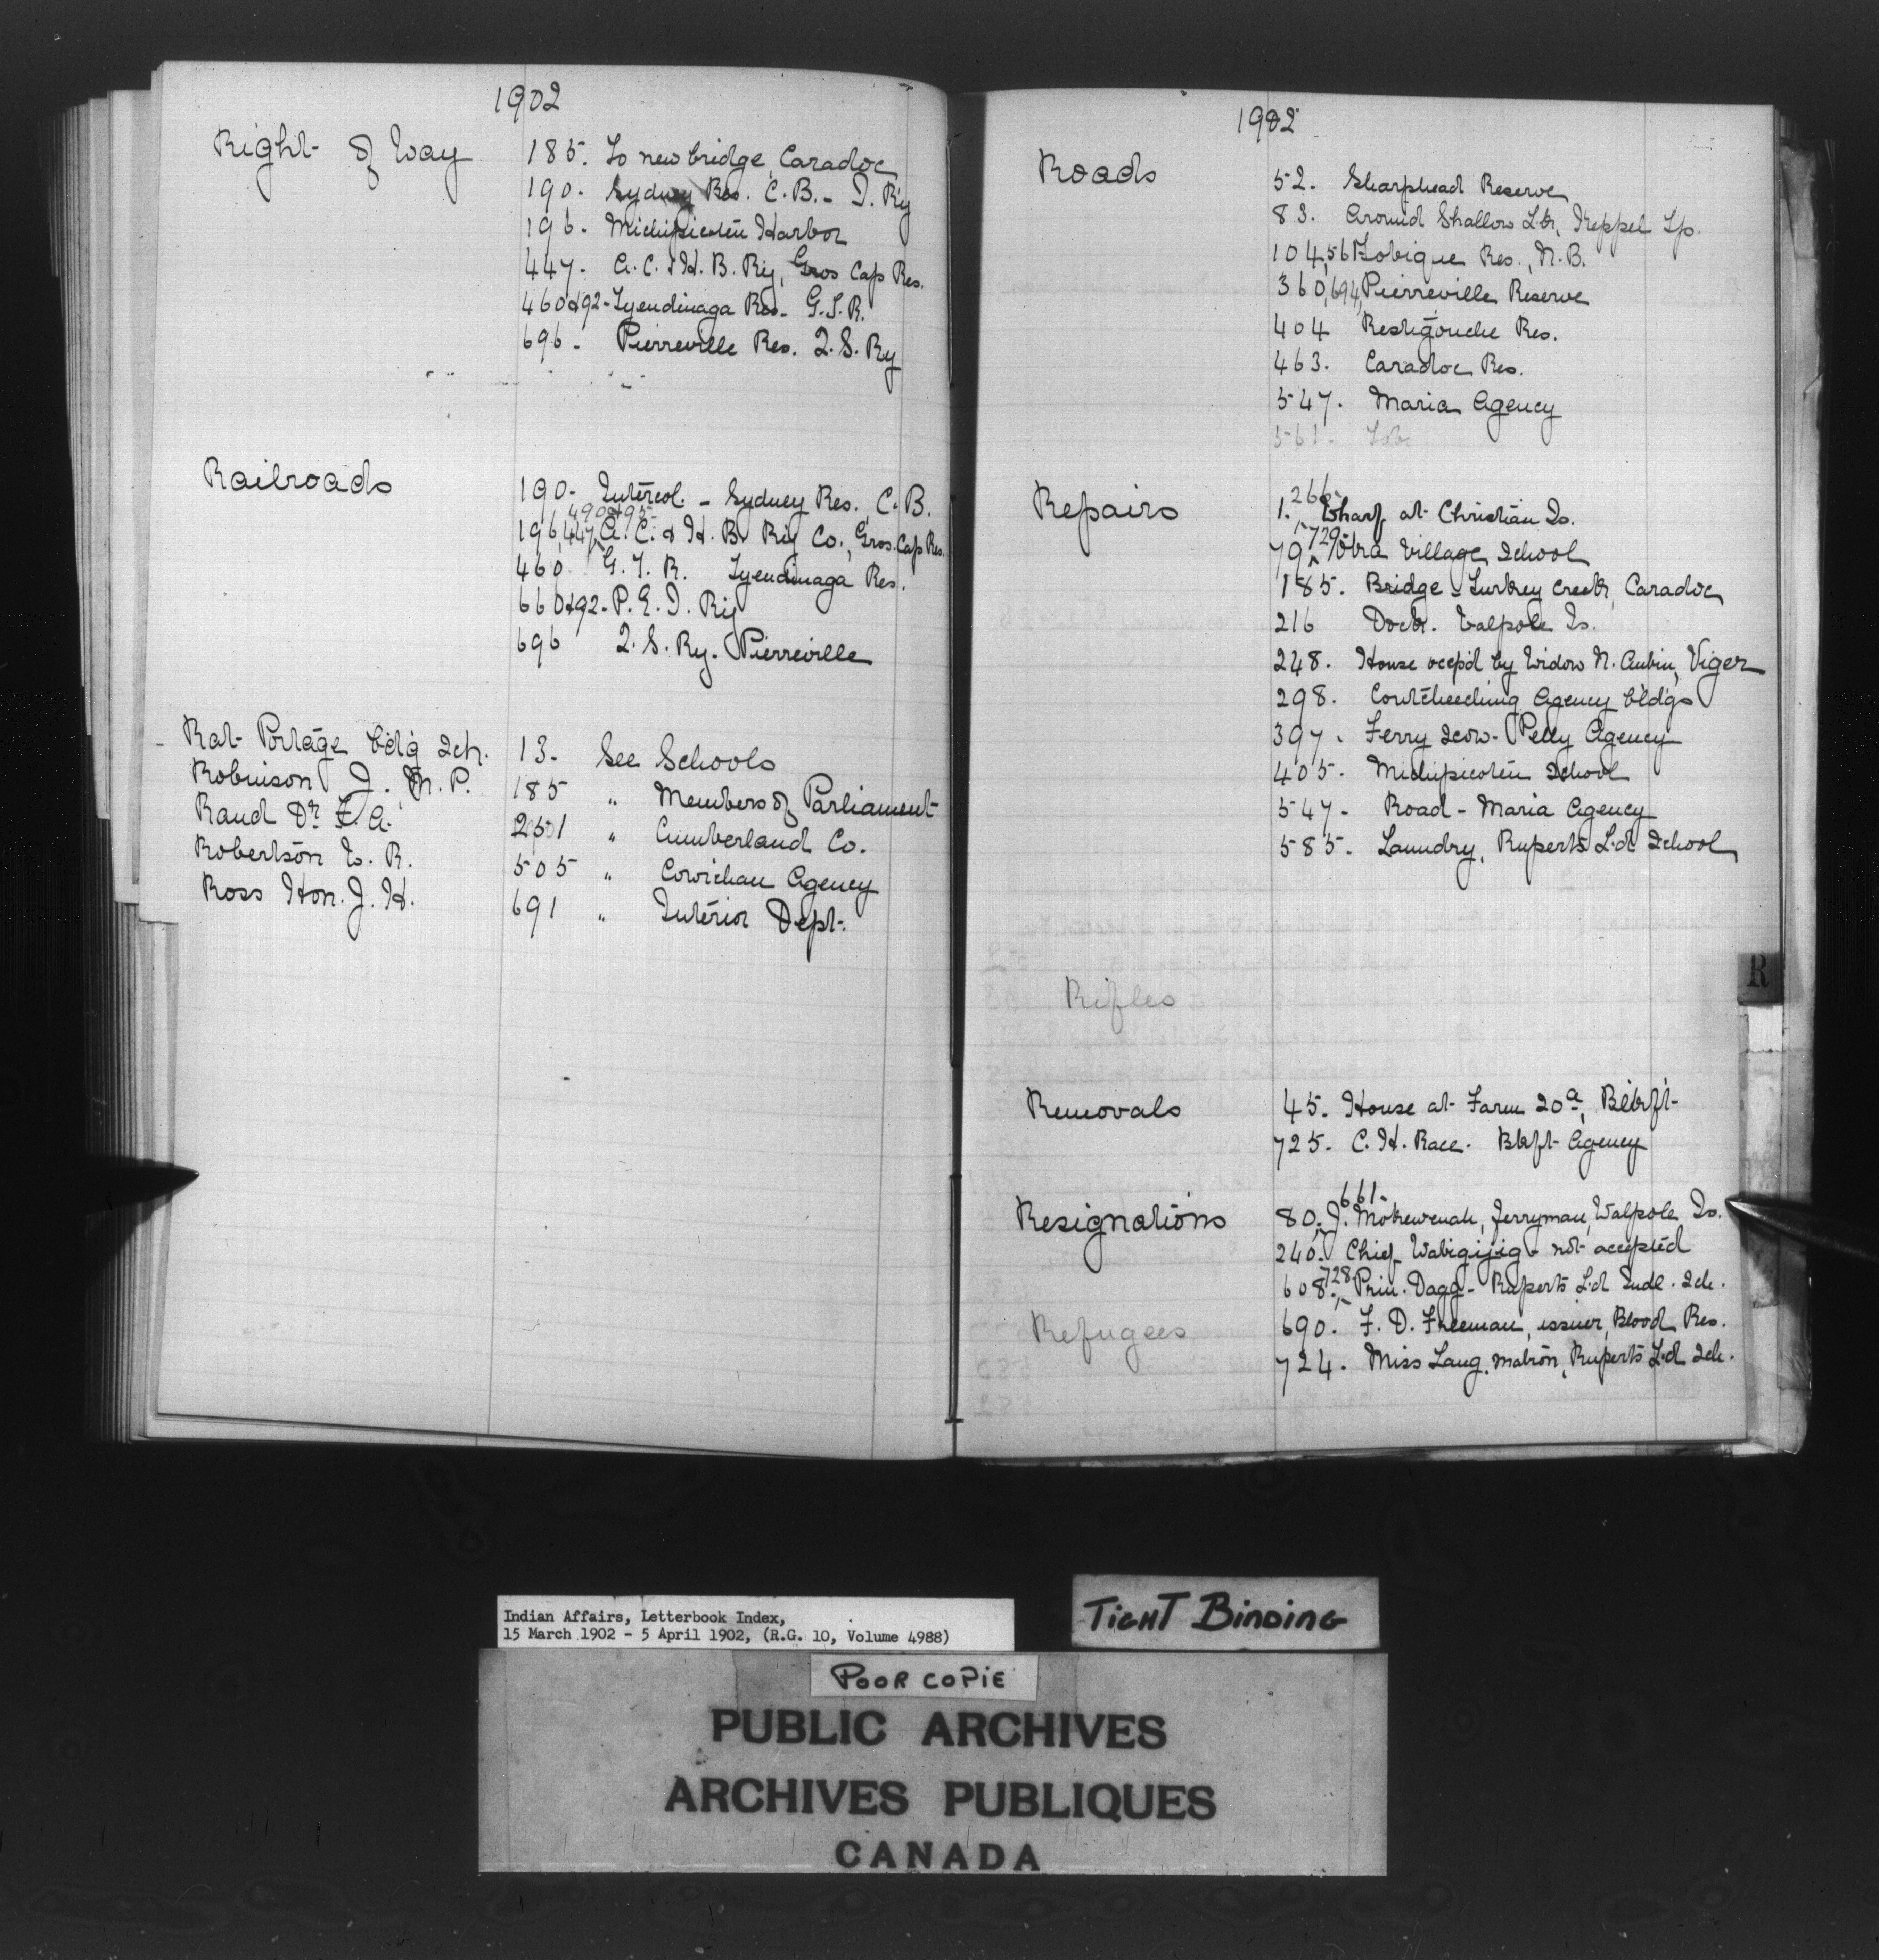 1902
Right of Way 185. To new bridge, Caradoc
190. Sydney Res. C.B. - I. Ry
196. Michipicoten Harbor
447. A.C. & H.B. Ry, Gros Cap Res.
460&92 - Tyendinaga Res. G.T.R.
696 - Pierreville Res. Q.S. Ry
Railroads 190- Intercol. - Sydney Res., C.B.
490&95-
196,447, A.C. & H.B. Ry Co., Gros. Cap Res.
460. G.T.R. Tyendinaga Res.
660&92- P.E.I. Ry
696 Q.S. Ry. Pierreville
Rat Portage bdg Sch. 13. See Schools
Robinson J., M.P. 185 " Members of Parliament
Rand Dr. F.A. 251 " Cumberland Co.
Robertson W.R. 505 " Cowichan Agency
Ross Hon. J.H. 691 " Interior Dept.
1902
Roads 52. Sharphead Reserve
83. Around Shallow Lk, Keppel Tp.
104,561 Tobique Res., N.B.
360,694, Pierreville Reserve
404 Restigouche Res.
463. Caradoc Res.
547. Maria Agency
561. Tob
266-
Repairs 1., Wharf at Christian Is.
729-
79, Village School
185. Bridge - Turkey Creek, Caradoc
216 Dock. Walpole Is.
248. House occp'd by Widow N. Aubin, Viger
298. Coutcheeching Agency bldgs
397. Ferry scow - Pelly Agency
405. Michipicoten School
547- Road - Maria Agency
585. Laundry, Ruperts L'd School
Rifles
Removals 45. House at Farm 20a, Blkft
725. C.H. Race. Blkft Agency
661-
Resignations 80, J. Mokewenah, ferryman, Walpole Is.
240. Chief Wabigijig - not accepted
728
608-, Prin. Dagg - Ruperts L'd Indl. Sch.
Refugees 690. F.D. Freeman, issuer, Blood Res.
724. Miss Lang, matron, Ruperts L'd Sch.
R
Indian Affairs, Letterbook Index,
15 March 1902 - 5 April 1902, (R.G. 10, Volume 4988)
TIGHT BINDING
POOR COPIE
PUBLIC ARCHIVES
ARCHIVES PUBLIQUES
CANADA